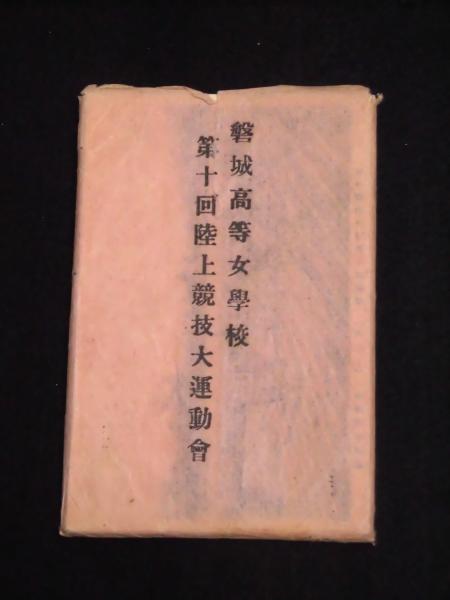 磐城高等女學校
第十回陸上競技大運動會